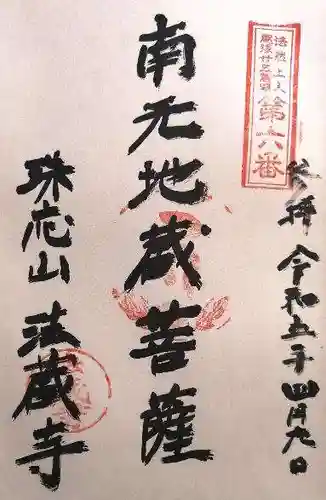 法然上人
第六番
参拝 令和五年四月九日
南无地蔵菩薩
珠応山 法蔵寺